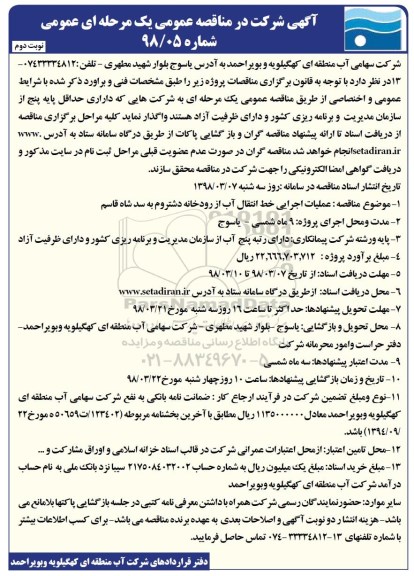 آگهی شرکت در مناقصه عمومی یک مرحله ای عمومی
شماره ۹۸/۰۵
نوبت دوم
شرکت سهامی آب منطقه ای کهگیلویه و بویراحمد به آدرس یاسوج بلوار شهید مطهری - تلفن: ۰۷۴۳۳۳۳۴۸۱۲-
۱۳ در نظر دارد با توجه به قانون برگزاری مناقصات پروژه زیر را طبق مشخصات فنی و برآورد ذکر شده با شرایط
عمومی و اختصاصی از طریق مناقصه عمومی یک مرحله ای به شرکت هایی که دارای حداقل پایه پنج از
سازمان مدیریت و برنامه ریزی کشور و دارای ظرفیت آزاد هستند واگذار نماید کلیه مراحل برگزاری مناقصه
از دریافت اسناد تا ارائه پیشنهاد مناقصه گران و باز گشایی پاکات از طریق درگاه سامانه ستاد به آدرس www.
setadiran.ir انجام خواهد شد مناقصه گران در صورت عدم عضویت قبلی مراحل ثبت نام در سایت مذکور و
دریافت گواهی امضا الکترونیکی را جهت شرکت در مناقصه محقق سازند.
تاریخ انتشار اسناد مناقصه در سامانه :روز سه شنبه ۱۳۹۸/۰۳/۰۷
۱- موضوع مناقصه : عملیات اجرایی خط انتقال آب از رودخانه دشتروم به سد شاه قاسم
۲- مدت ومحل اجرای پروژه: ۹ ماه شمسی - یاسوج
۳- پایه ورشته شرکت پیمانکاری: دارای رتبه پنج آب از سازمان مدیریت و برنامه ریزی کشور و دارای ظرفیت آزاد
۴- مبلغ برآورد پروژه : ۲۲,۶۶۶,۷۰۳,۷۱۲ ریال
۵- مهلت دریافت اسناد: از تاریخ ۹۸/۰۳/۰۷ تا ۹۸/۰۳/۱۰
۶- محل دریافت اسناد: ازطریق درگاه سامانه ستاد به آدرس www.setadiran.ir
۷- مهلت تحویل پیشنهادها: حداکثر تا ساعت ۱۶ روز سه شنبه مورخ ۹۸/۰۳/۲۱
۸- محل تحویل و بازگشایی: یاسوج -بلوار شهید مطهری - شرکت سهامی آب منطقه ای کهگیلویه وبویراحمد-
دفتر حراست وامور محرمانه شرکت
۹- مدت اعتبار پیشنهادها: سه ماه شمسی
۱۰- تاریخ و زمان بازگشایی پیشنهادها: ساعت ۱۰ روز چهار شنبه مورخ ۹۸/۰۳/۲۲
۱۱-نوع ومبلغ تضمین شرکت در فرآیند ارجاع کار : ضمانت نامه بانکی به نفع شرکت سهامی آب منطقه ای
کهگیلویه وبویراحمد معادل ۱۱۳۵۰۰۰۰۰۰ ریال مطابق با آخرین بخشنامه مربوطه (۱۲۳۴۰۲/ت۵۰۶۵۹ ه مورخ ۲۲
/۱۳۹۴/۰۹) باشد.
۱۲-محل تامین اعتبار: ازمحل اعتبارات عمرانی شرکت در قالب اسناد خزانه اسلامی و اوراق مشارکت و ...
۱۳- مبلغ خرید اسناد: مبلغ یک میلیون ریال به شماره حساب ۲۱۷۵۰۸۴۰۳۲۰۰۲ سیبا نزد بانک ملی به نام حساب
درآمد شرکت آب منطقه ای کهگیلویه وبویراحمد
سایر موارد: حضور نمایندگان رسمی شرکت همراه با داشتن معرفی نامه کتبی در جلسه بازگشایی پاکتها بلامانع می
باشد- هزینه انتشار دو نوبت آگهی و اصلاحات بعدی به عهده برنده مناقصه می باشد-برای کسب اطلاعات بیشتر
با شماره تلفنهای ۱۳-۳۳۳۳۴۸۱۲-۰۷۴ تماس حاصل فرمایید.
دفتر قراردادهای شرکت آب منطقه ای کهگیلویه وبویراحمد
ParsNamadData
پایگاه اطلاع رسانی مناقصه و مزایده
۰۲۱-۸۸۳۴۹۶۷۰-۵